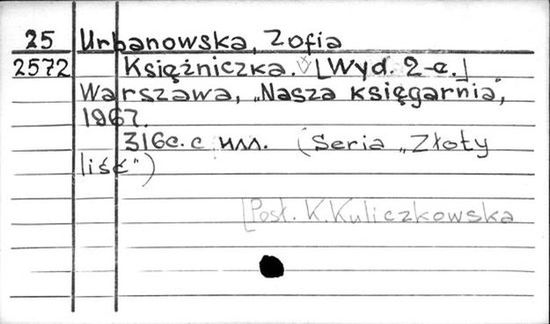 25 Urbanowska, Zofia
2572 Księżniczka. [Wyd. 2-e.]
Warszawa, „Nasza księgarnia,"
1967.
316c. с илл. (Seria „Złoty
liść")
[Posł. K. Kuliczkowska